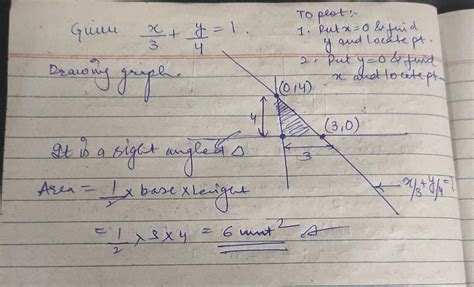 Given x/3 + y/4 = 1.
To plot:-
1. Put x=0 & find
y and locate pt.
2. Put y=0 & find
x and locate pt.
Drawing graph.
(0,4)
4
(3,0)
3
x/3 + y/4 = 1
It is a right angled Δ
Area = 1/2 × base × height
= 1/2 × 3 × 4 = 6 unit²